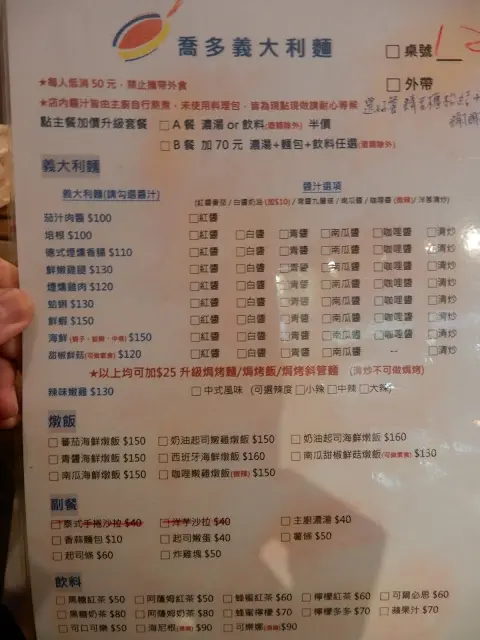 喬多義大利麵
□桌號
★每人低消 50 元，禁止攜帶外食
□外帶
★店內醬汁皆由主廚自行熬煮，未使用料理包，皆為現點現做請耐心等候
點主餐加價升級套餐 □A 餐 濃湯 or 飲料(造型除外) 半價
□B 餐 加 70 元 濃湯+麵包+飲料任選(造型除外)
義大利麵
義大利麵(請勾選醬汁) 醬汁選項
(紅醬番茄 / 白醬奶油(加$10) / 青醬九層塔 / 南瓜醬 / 咖哩醬(微辣) / 洋蔥清炒)
茄汁肉醬 $100 □紅醬
培根 $100 □紅醬 □白醬 □青醬 □南瓜醬 □咖哩醬 □清炒
德式煙燻香腸 $110 □紅醬 □白醬 □青醬 □南瓜醬 □咖哩醬 □清炒
鮮嫩雞腿 $130 □紅醬 □白醬 □青醬 □南瓜醬 □咖哩醬 □清炒
煙燻雞肉 $120 □紅醬 □白醬 □青醬 □南瓜醬 □咖哩醬 □清炒
蛤蜊 $130 □紅醬 □白醬 □青醬 □南瓜醬 □咖哩醬 □清炒
鮮蝦 $150 □紅醬 □白醬 □青醬 □南瓜醬 □咖哩醬 □清炒
海鮮 $150 □紅醬 □白醬 □青醬 □南瓜醬 □咖哩醬 □清炒
甜椒鮮菇(可做素食) $120 □紅醬 □白醬 □青醬 □南瓜醬 -- □清炒
★以上均可加$25 升級焗烤麵/焗烤飯/焗烤斜管麵 (清炒不可做焗烤)
辣味嫩雞 $130 □中式風味 (可選辣度 □小辣 □中辣 □大辣)
燉飯
□蕃茄海鮮燉飯 $150 □奶油起司嫩雞燉飯 $150 □奶油起司海鮮燉飯 $160
□青醬海鮮燉飯 $150 □西班牙海鮮燉飯 $160 □南瓜甜椒鮮菇燉飯(可做素食) $130
□南瓜海鮮燉飯 $150 □咖哩嫩雞燉飯(微辣) $150
副餐
□泰式手捲沙拉 $40 □洋芋沙拉 $40 □主廚濃湯 $40
□香蒜麵包 $10 □起司嫩蛋 $40 □薯條 $50
□起司條 $60 □炸雞塊 $50
飲料
□黑糖紅茶 $50 □阿薩姆紅茶 $50 □蜂蜜紅茶 $60 □檸檬紅茶 $60 □可爾必思 $60
□黑糖奶茶 $80 □阿薩姆奶茶 $80 □蜂蜜檸檬 $70 □檸檬多多 $70 □蘋果汁 $70
□可口可樂 $50 □海尼根 $90 □可樂娜 $90